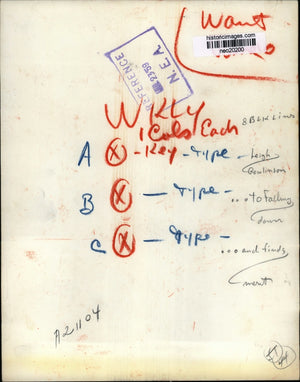 Want
historicimages.com
neo20200
REFERENCE
N.E.A.
WKLY
1 Col Each
8 Blk Lines
A X - Key - Type - Leigh
B X - Type - ... to falling
down
C X - Type - ... and finds
merit
A21104